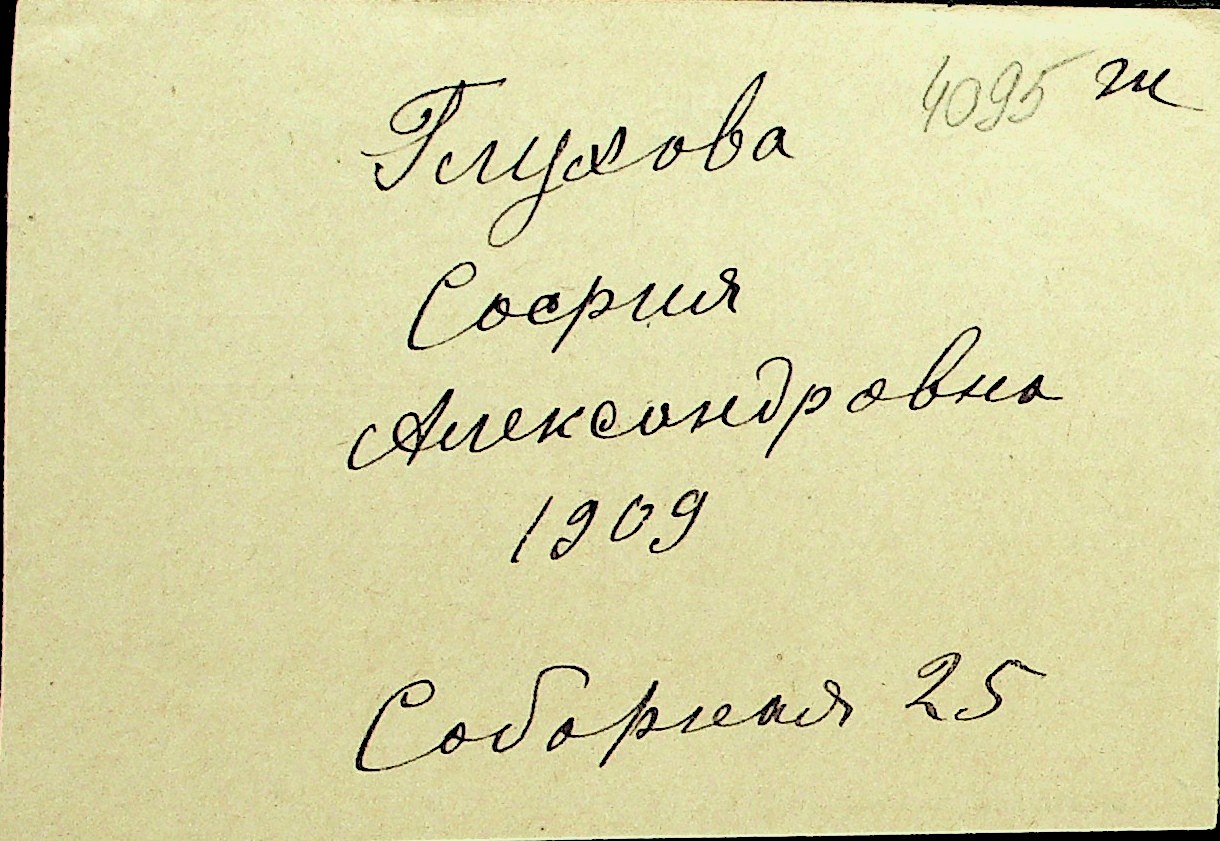 4095 ж
Глухова
София
Александровна
1909
Соборная 25